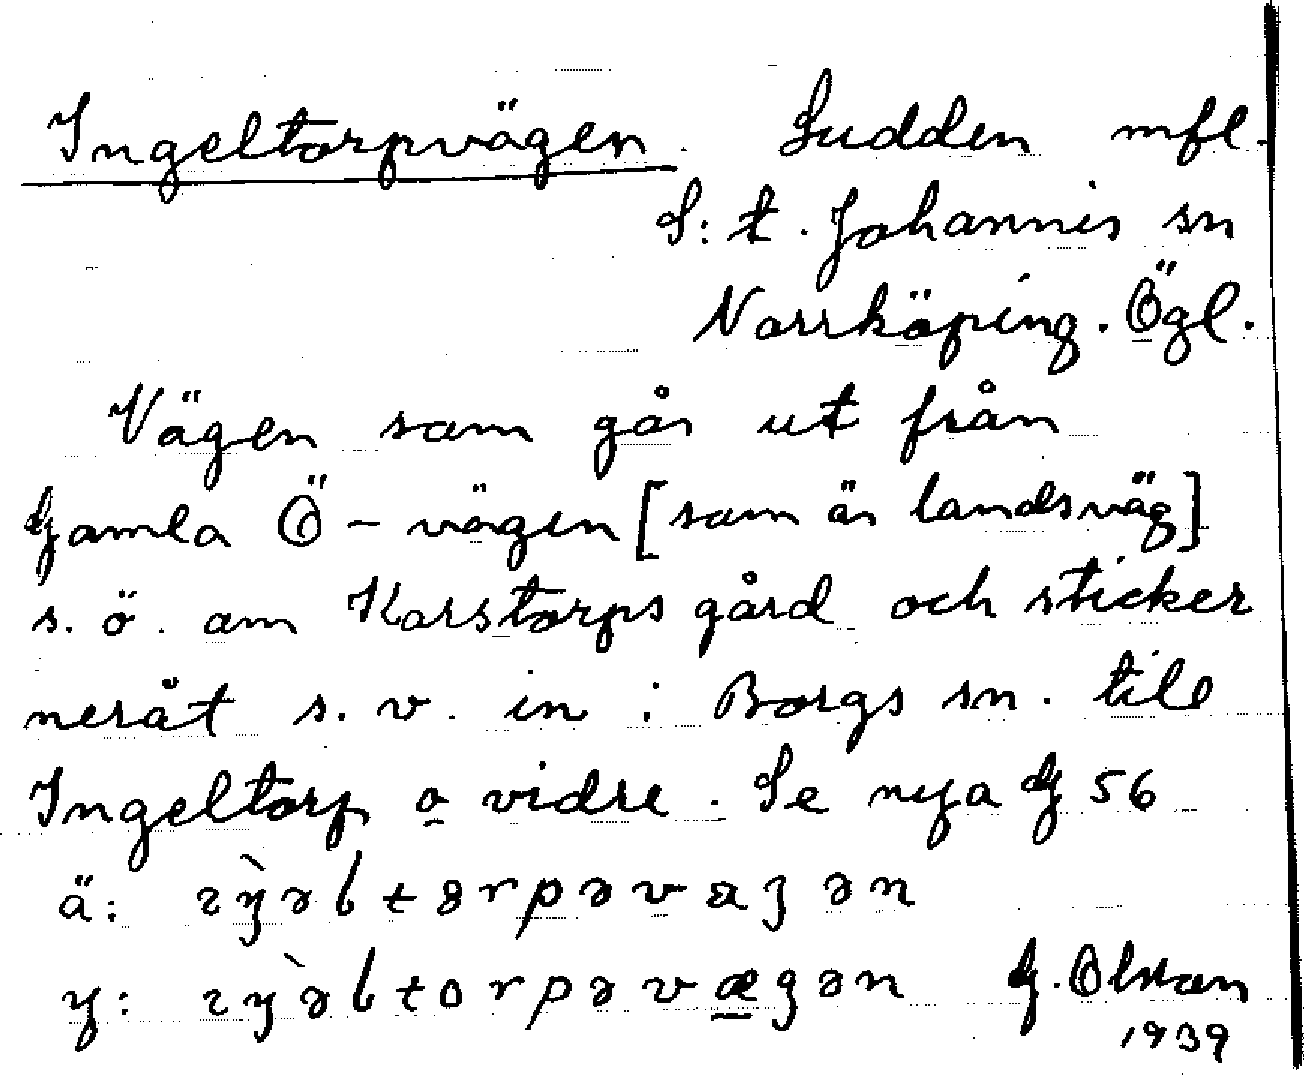 Ingeltorpvägen. Sudden mfl.
S:t. Johannis sn
Norrköping. Ögl.
Vägen som går ut från
Gamla Ö-vägen [som är landsväg]
s. ö. om Korstorps gård och sticker
neråt s. v. in i Borgs sn. till
Ingeltorp o vidre. Se nya G 56
ä:
y: G. Olsson
1939